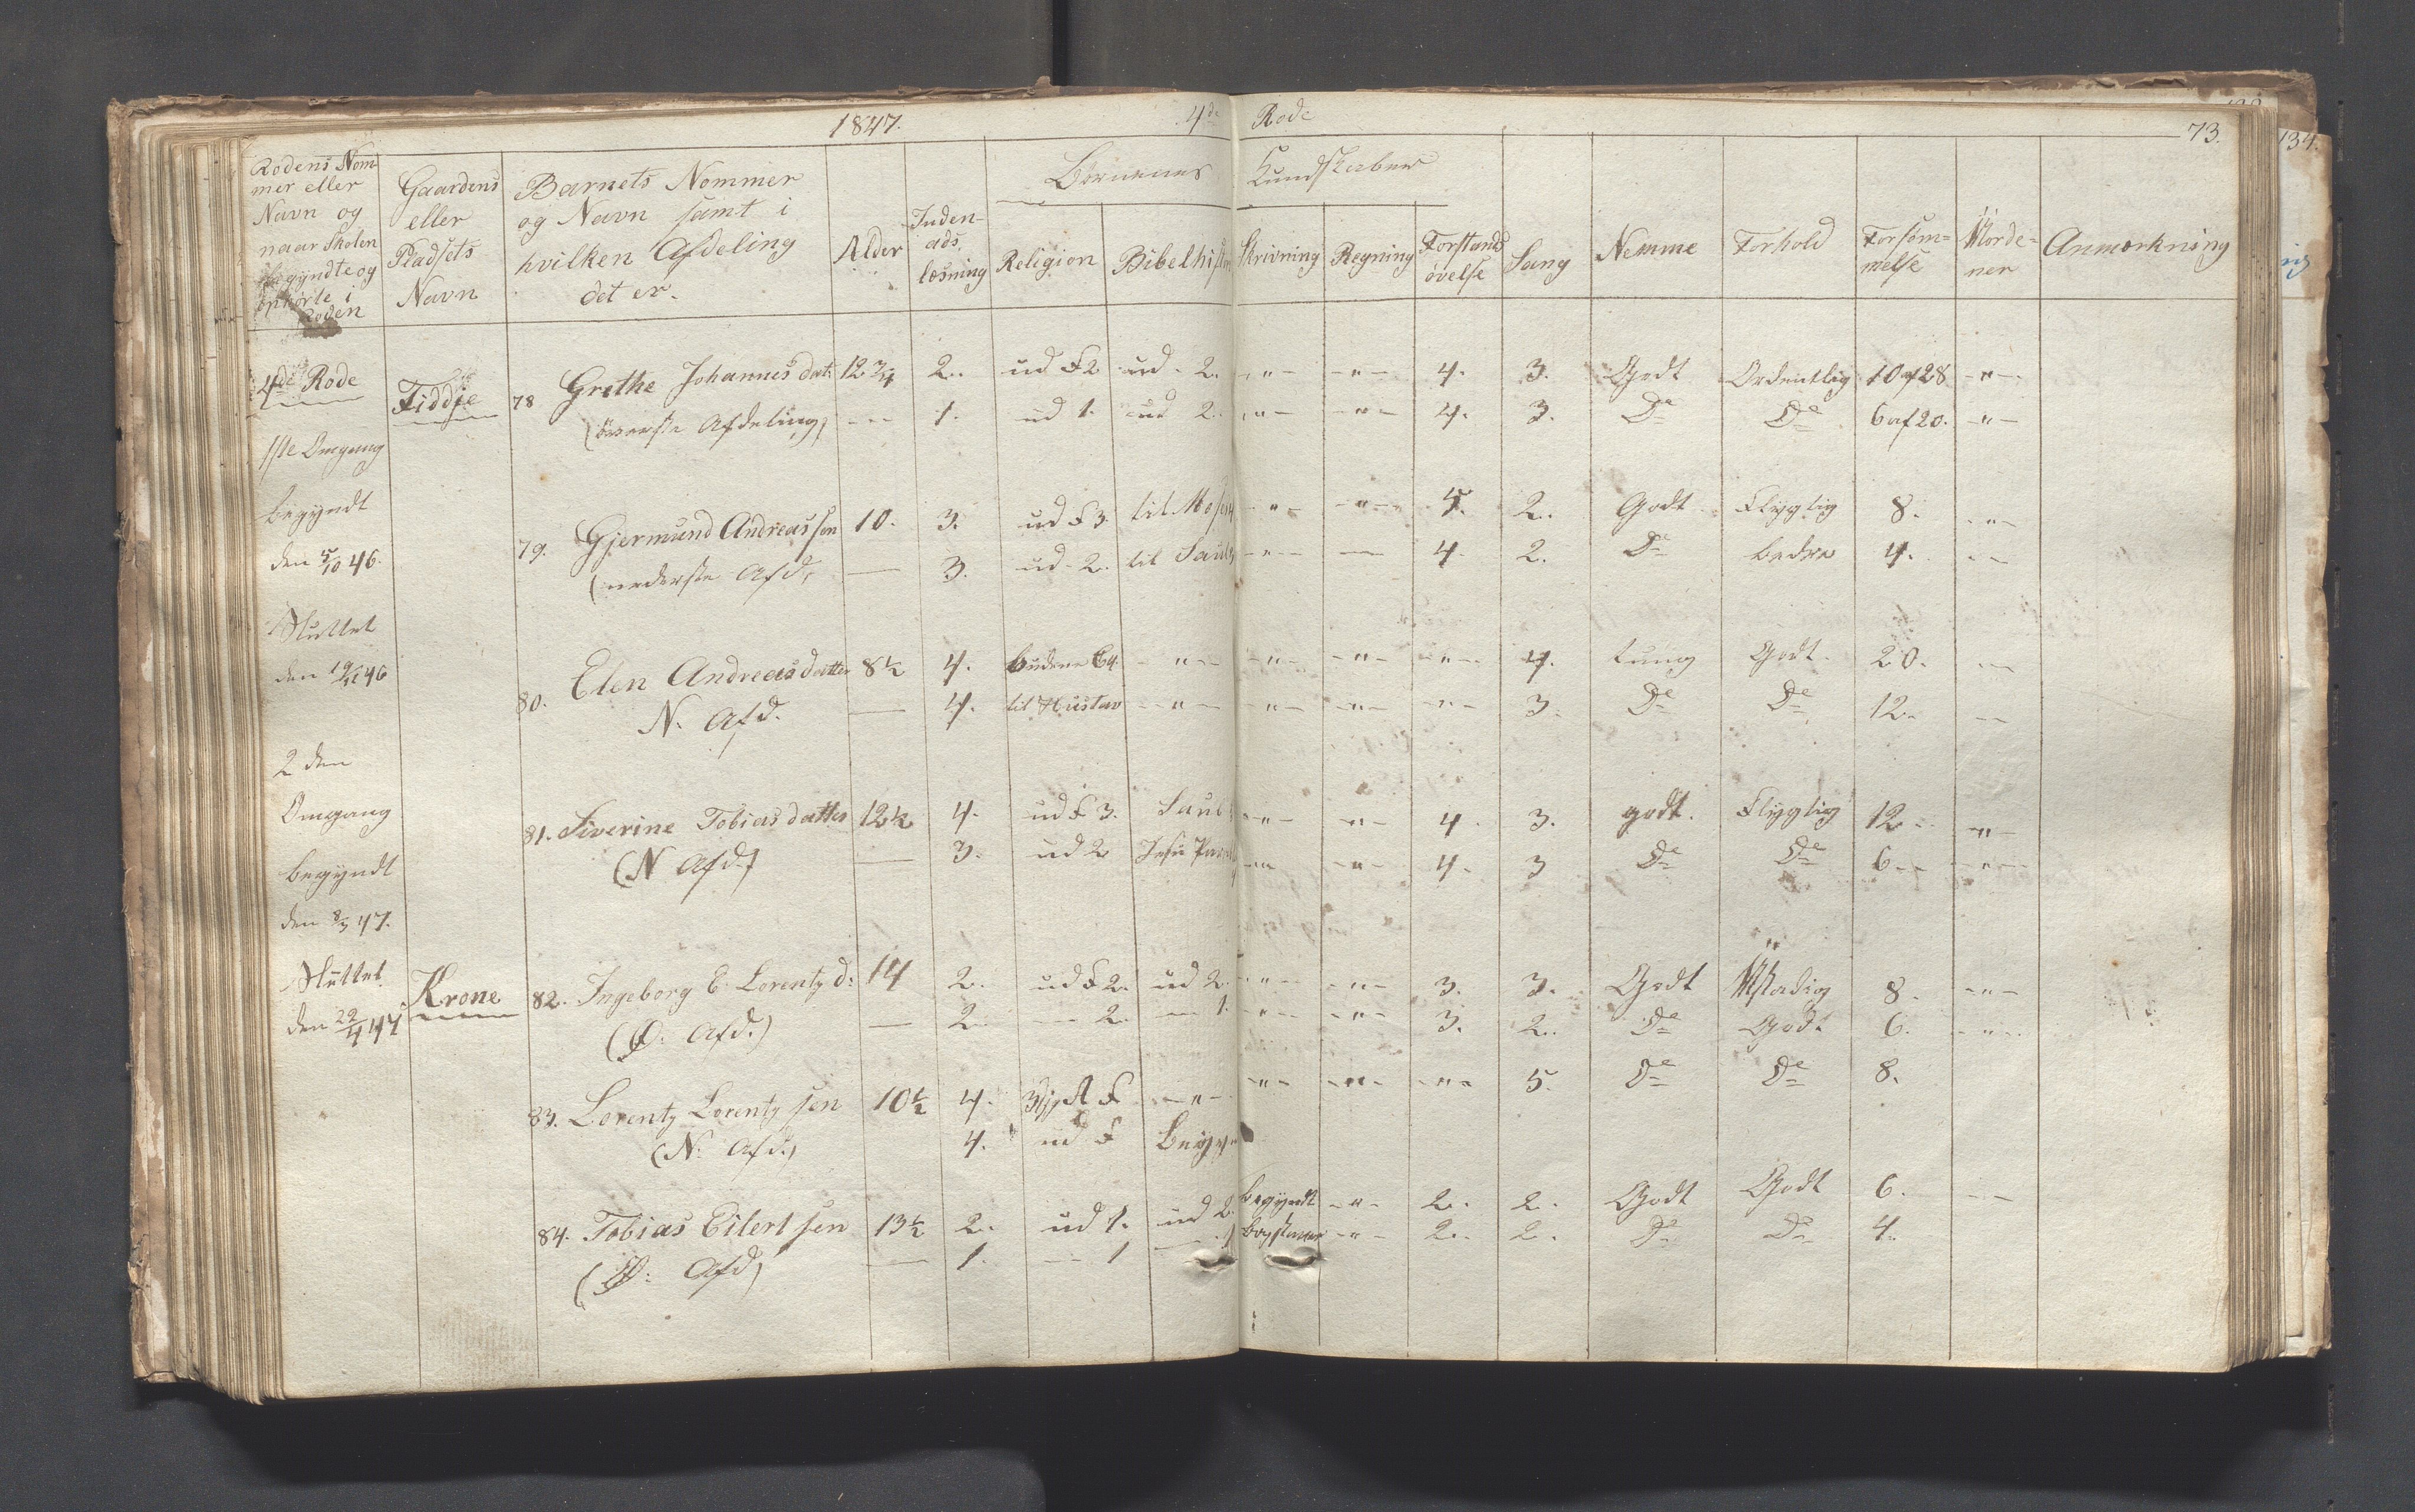 1847. 4de Rode 73.
134.
Rodens Nom-
mer eller
Navn og
naar Skolen
begyndte og
ophørte i
Roden
Gaardens
eller
Pladsets
Navn
Barnets Nommer
og Navn samt i
hvilken Afdeling
det er.
Alder
Inden-
ads
læsning
Børnenes Kundskaber
Religion Bibelhistor Skrivning Regning Forstands
øvelse
Sang Nemme Forhold Forsøm=
melse
Anmærkning
4de Rode Fiddje 78 Grethe Johannesdat: 12 3/4 2. ud F 2 ud - 2. -"- -"- 4. 3. Godt Ordentlig 10 af 28 -"-
(øverste Afdeling) -- 1. ud 1. ud 2. -"- -"- 4. 3. De De 6 af 20. -"-
1ste Omgang
begyndt
79. Gjermund Andreassen 10. 3. ud F 3. til Moses -"- -"- 5. 2. Godt Flygtig 8. -"-
den 5/10 46. (nederste Afd, — 3. ud - 2. til Sauls -"- — 4. 2. De bedre 4. --
Sluttet
den 19/11 46
80. Elen Andreasdatter 8 1/2 4. budene C 4. -"- -"- -"- -"- 4. tung Godt. 20. --
N. Afd. — 4. til Hustav -"- -"- -"- -"- 3. De De 12. --
2den
Omgang
81. Siverine Tobiasdatter 12 1/2 4. ud F 3. Saul -"- -"- 4. 3. godt. Flygtig 12. -"-
(N Afd.) — 3. ud 2 Jesu -"- -"- 4. 3 De De 6 -"-
begyndt
den 8/3 47.
Sluttet
den 22/4 47
Krone 82. Ingeborg E. Lorentz d: 14 2. ud F 2. ud 2. -"- -"- 3. 3. Godt 8. -"-
(Ø: Afd.) — 2. — 2. — 1. -"- -"- 3. 2. De God. 6. -"-
83. Lorentz Lorentzsen 10 1/2 4. F -"- -"- -"- -"- 5. De De 8.
(N. Afd.) 4. ud F
84. Tobias Eilertsen 13 1/2 2. ud 1. ud 2. begyndt -"- 2. 2. Godt Godt 6. --
(Ø: Afd) — 1. — 1 — 1 bogstaver -"- 2. 2. De De 4.